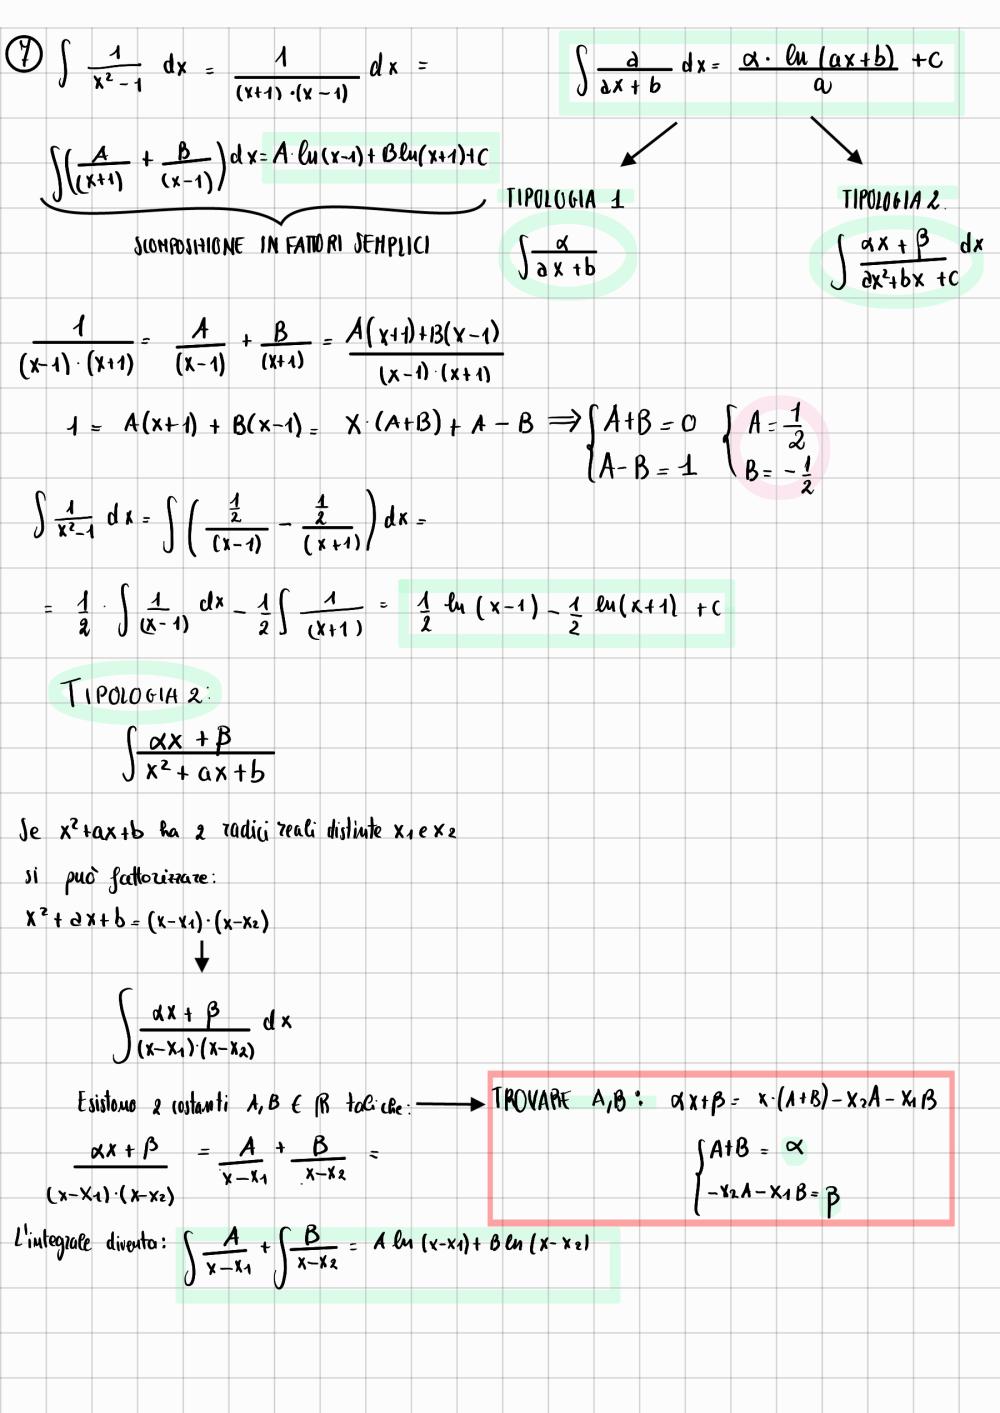 7 ∫ 1/(x² - 1) dx = 1/((x+1)·(x-1)) dx =
∫ a/(ax + b) dx = α · ln(ax+b)/a + c
∫(A/(x+1) + B/(x-1)) dx = A·ln(x-1) + B ln(x+1) + C
SCOMPOSIZIONE IN FATTORI SEMPLICI
TIPOLOGIA 1
∫ α/(ax + b)
TIPOLOGIA 2.
∫ (αx + β)/(ax² + bx + c) dx
1/((x-1)·(x+1)) = A/(x-1) + B/(x+1) = (A(x+1) + B(x-1))/((x-1)·(x+1))
1 = A(x+1) + B(x-1) = X·(A+B) + A - B ⟹ { A+B = 0 { A = 1/2
A - B = 1 B = - 1/2
∫ 1/(x²-1) dx = ∫ ( (1/2)/(x-1) - (1/2)/(x+1) ) dx =
= 1/2 · ∫ 1/(x-1) dx - 1/2 ∫ 1/(x+1) = 1/2 ln (x-1) - 1/2 ln(x+1) + c
TIPOLOGIA 2:
∫ (αx + β)/(x² + ax + b)
Se x²+ax+b ha 2 radici reali distinte x₁ e x₂
si può fattorizzare:
x² + ax + b = (x-x₁)·(x-x₂)
↓
∫ (αx + β)/((x-x₁)·(x-x₂)) dx
Esistono 2 costanti A, B ∈ ℝ tali che: → TROVARE A,B: αx+β = x·(A+B) - x₂A - x₁B
(αx + β)/((x-x₁)·(x-x₂)) = A/(x-x₁) + B/(x-x₂) =
{ A+B = α
-x₂A - x₁B = β
L'integrale diventa: ∫ A/(x-x₁) + ∫ B/(x-x₂) = A ln (x-x₁) + B ln (x-x₂)